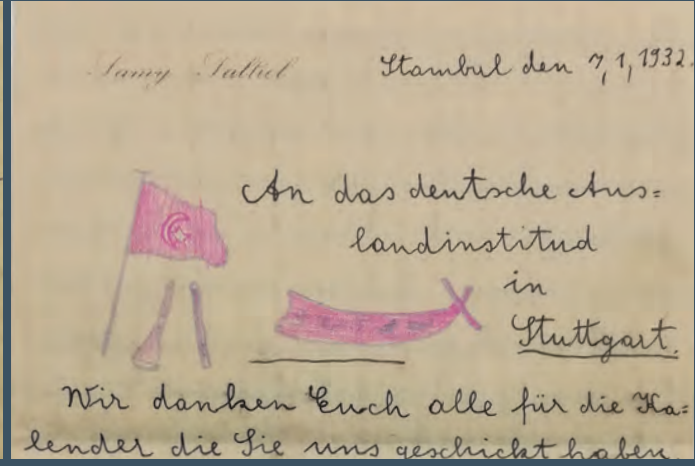 Samy
Stambul den 7,1,1932.
An das deutsche Aus=
landinstitud
in
Stuttgart.
Wir danken Euch alle für die Ka=
lender die Sie uns geschickt haben.